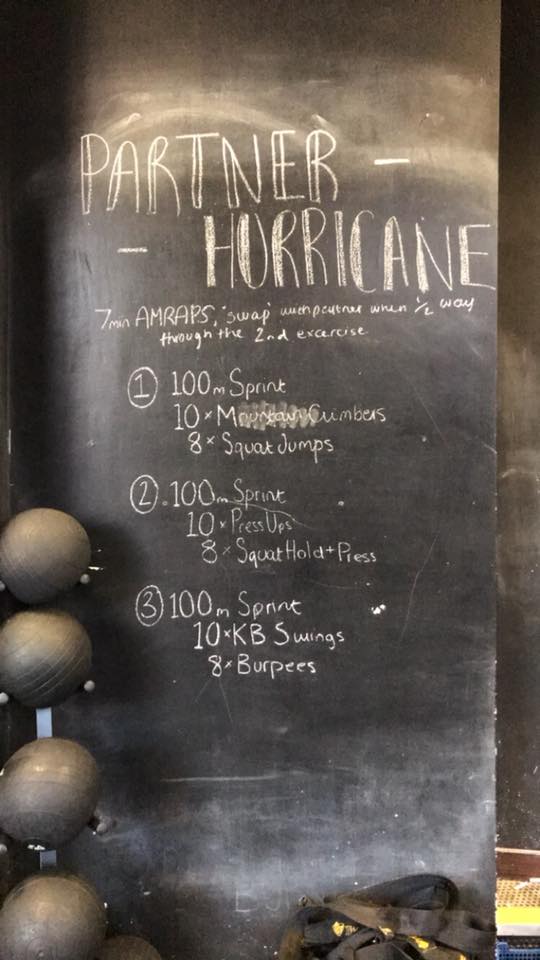 PARTNER -
- HURRICANE
7min AMRAPS, "swap" with partner when 1/2 way
through the 2nd excercise
① 100m Sprint
10 × Mountain Cimbers
8 × Squat Jumps
②. 100m Sprint
10 × Press Ups
8 × Squat Hold + Press
③ 100m Sprint
10 × KB Swings
8 × Burpees